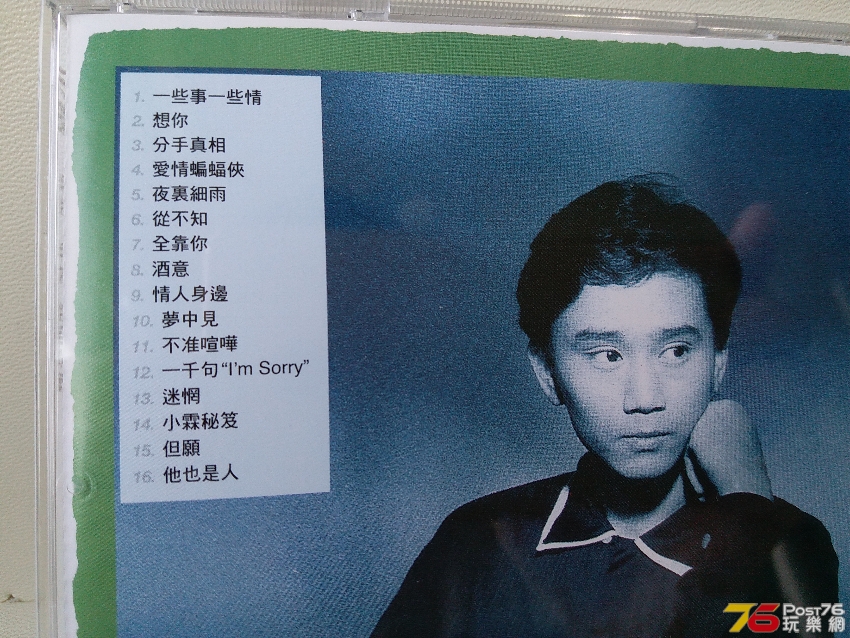 1. 一些事一些情
2. 想你
3. 分手真相
4. 愛情蝙蝠俠
5. 夜裏細雨
6. 從不知
7. 全靠你
8. 酒意
9. 情人身邊
10. 夢中見
11. 不准喧嘩
12. 一千句“I'm Sorry”
13. 迷惘
14. 小霖秘笈
15. 但願
16. 他也是人
76 Post76
玩樂網